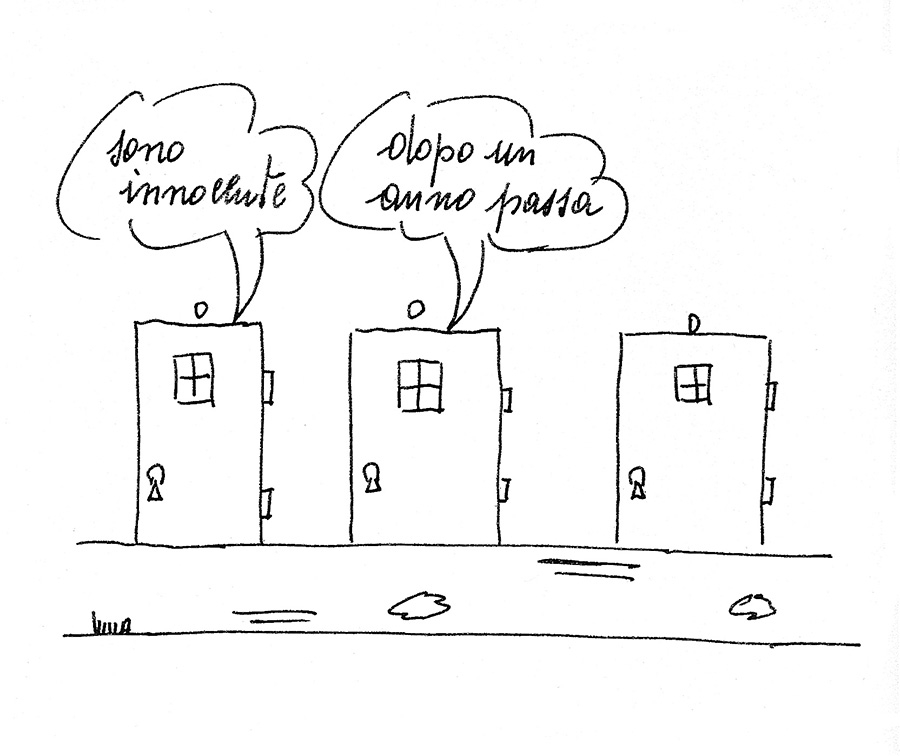 sono
innocente
dopo un
anno passa